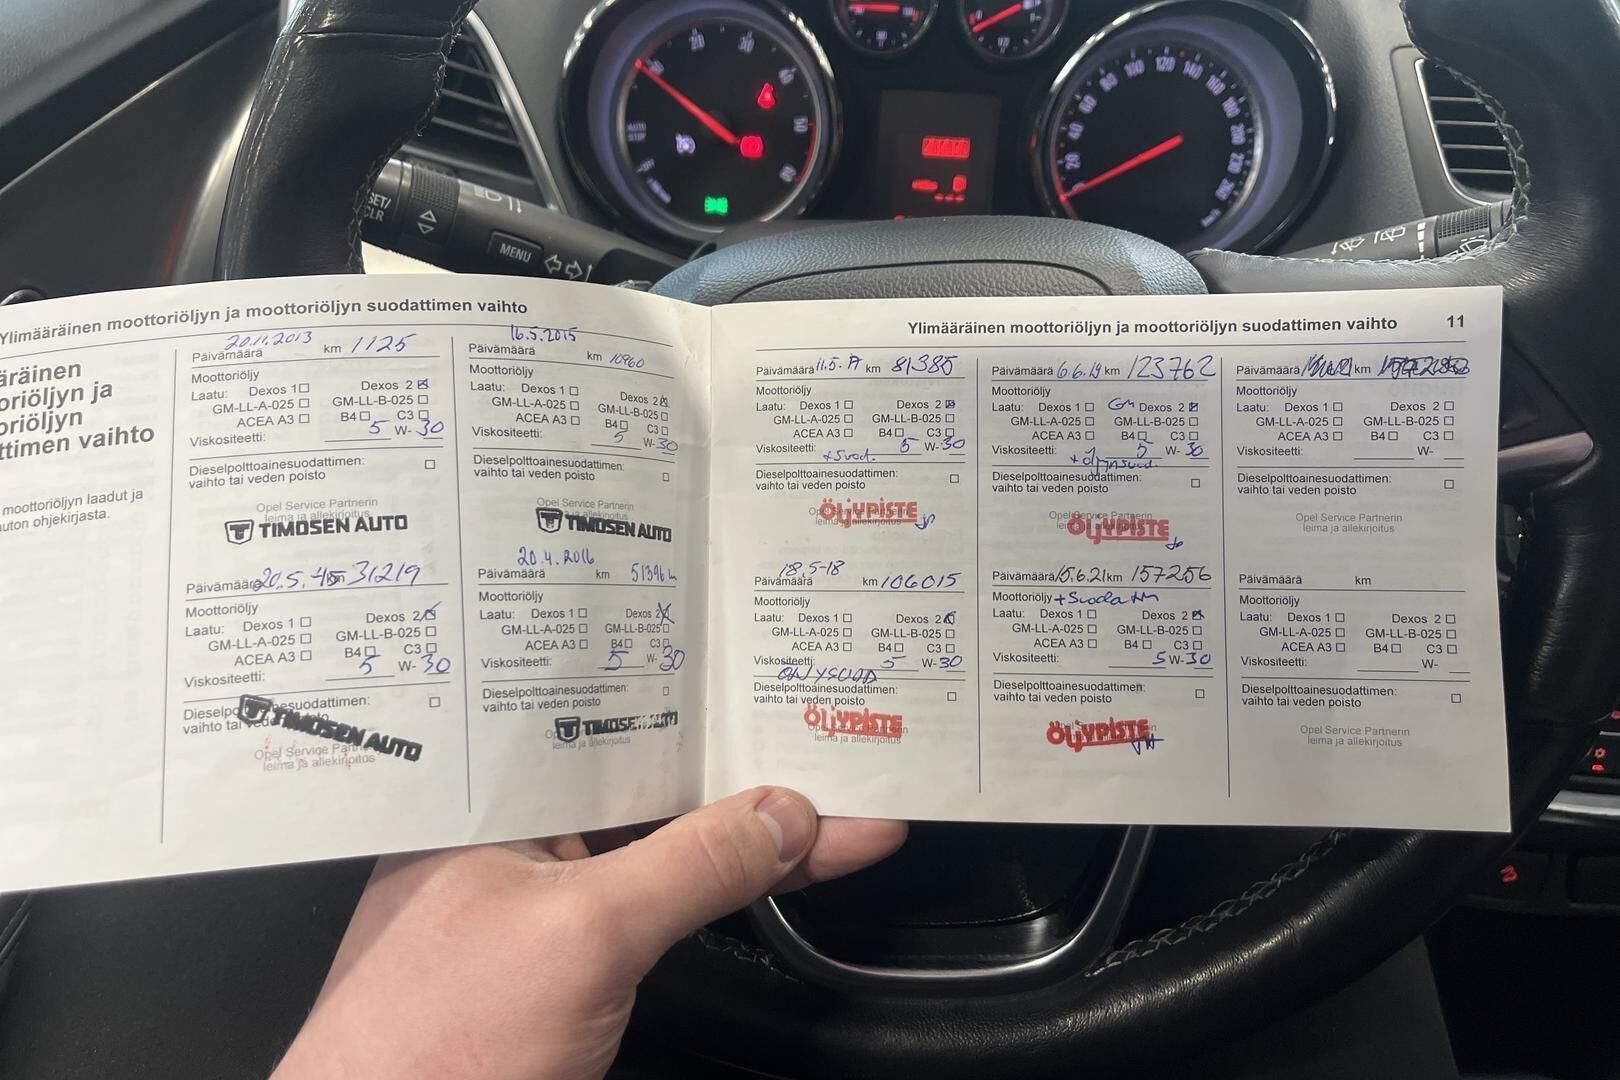 20
30
40
50
60
20
40
60
80
100
120
140
160
180
200
220
SET/
CLR
MENU
Ylimääräinen moottoriöljyn ja moottoriöljyn suodattimen vaihto
äräinen
oriöljyn ja
oriöljyn
ttimen vaihto
moottoriöljyn laadut ja
uton ohjekirjasta.
20.11.2013
Päivämäärä km 1125
Moottoriöljy
Laatu: Dexos 1 Dexos 2
GM-LL-A-025 GM-LL-B-025
ACEA A3 B4 C3
Viskositeetti: 5 W-30
Dieselpolttoainesuodattimen:
vaihto tai veden poisto
Opel Service Partnerin
leima ja allekirjoitus
TIMOSEN AUTO
16.5.2015
Päivämäärä km 10960
Moottoriöljy
Laatu: Dexos 1 Dexos 2
GM-LL-A-025 GM-LL-B-025
ACEA A3 B4 C3
Viskositeetti: 5 W-30
Dieselpolttoainesuodattimen:
vaihto tai veden poisto
Opel Service Partnerin
leima ja allekirjoitus
TIMOSEN AUTO
Päivämäärä 20.5. km 31219
Moottoriöljy
Laatu: Dexos 1 Dexos 2
GM-LL-A-025 GM-LL-B-025
ACEA A3 B4 C3
Viskositeetti: 5 W-30
Dieselpolttoainesuodattimen:
vaihto tai veden poisto
TIMOSEN AUTO
Opel Service Partnerin
leima ja allekirjoitus
20.4.2016
Päivämäärä km 51396
Moottoriöljy
Laatu: Dexos 1 Dexos 2
GM-LL-A-025 GM-LL-B-025
ACEA A3 B4 C3
Viskositeetti: 5 W-30
Dieselpolttoainesuodattimen:
vaihto tai veden poisto
TIMOSEN AUTO
leima ja allekirjoitus
Ylimääräinen moottoriöljyn ja moottoriöljyn suodattimen vaihto 11
Päivämäärä 11.5. km 81385
Moottoriöljy
Laatu: Dexos 1 Dexos 2
GM-LL-A-025 GM-LL-B-025
ACEA A3 B4 C3
Viskositeetti: 5 W-30
+ suod.
Dieselpolttoainesuodattimen:
vaihto tai veden poisto
Opel Service Partnerin
leima ja allekirjoitus
ÖLJYPISTE
Päivämäärä 6.6.19 km 123762
Moottoriöljy
Laatu: Dexos 1 GM Dexos 2
GM-LL-A-025 GM-LL-B-025
ACEA A3 B4 C3
Viskositeetti: 5 W-30
Dieselpolttoainesuodattimen:
vaihto tai veden poisto
Opel Service Partnerin
leima ja allekirjoitus
ÖLJYPISTE
Päivämäärä km
Moottoriöljy
Laatu: Dexos 1 Dexos 2
GM-LL-A-025 GM-LL-B-025
ACEA A3 B4 C3
Viskositeetti: W-
Dieselpolttoainesuodattimen:
vaihto tai veden poisto
Opel Service Partnerin
leima ja allekirjoitus
18.5-18
Päivämäärä km 106015
Moottoriöljy
Laatu: Dexos 1 Dexos 2
GM-LL-A-025 GM-LL-B-025
ACEA A3 B4 C3
Viskositeetti: 5 W-30
Dieselpolttoainesuodattimen:
vaihto tai veden poisto
ÖLJYPISTE
leima ja allekirjoitus
Päivämäärä 15.6.21 km 157256
Moottoriöljy
Laatu: Dexos 1 Dexos 2
GM-LL-A-025 GM-LL-B-025
ACEA A3 B4 C3
Viskositeetti: 5 W-30
Dieselpolttoainesuodattimen:
vaihto tai veden poisto
ÖLJYPISTE
leima ja allekirjoitus
Päivämäärä km
Moottoriöljy
Laatu: Dexos 1 Dexos 2
GM-LL-A-025 GM-LL-B-025
ACEA A3 B4 C3
Viskositeetti: W-
Dieselpolttoainesuodattimen:
vaihto tai veden poisto
Opel Service Partnerin
leima ja allekirjoitus